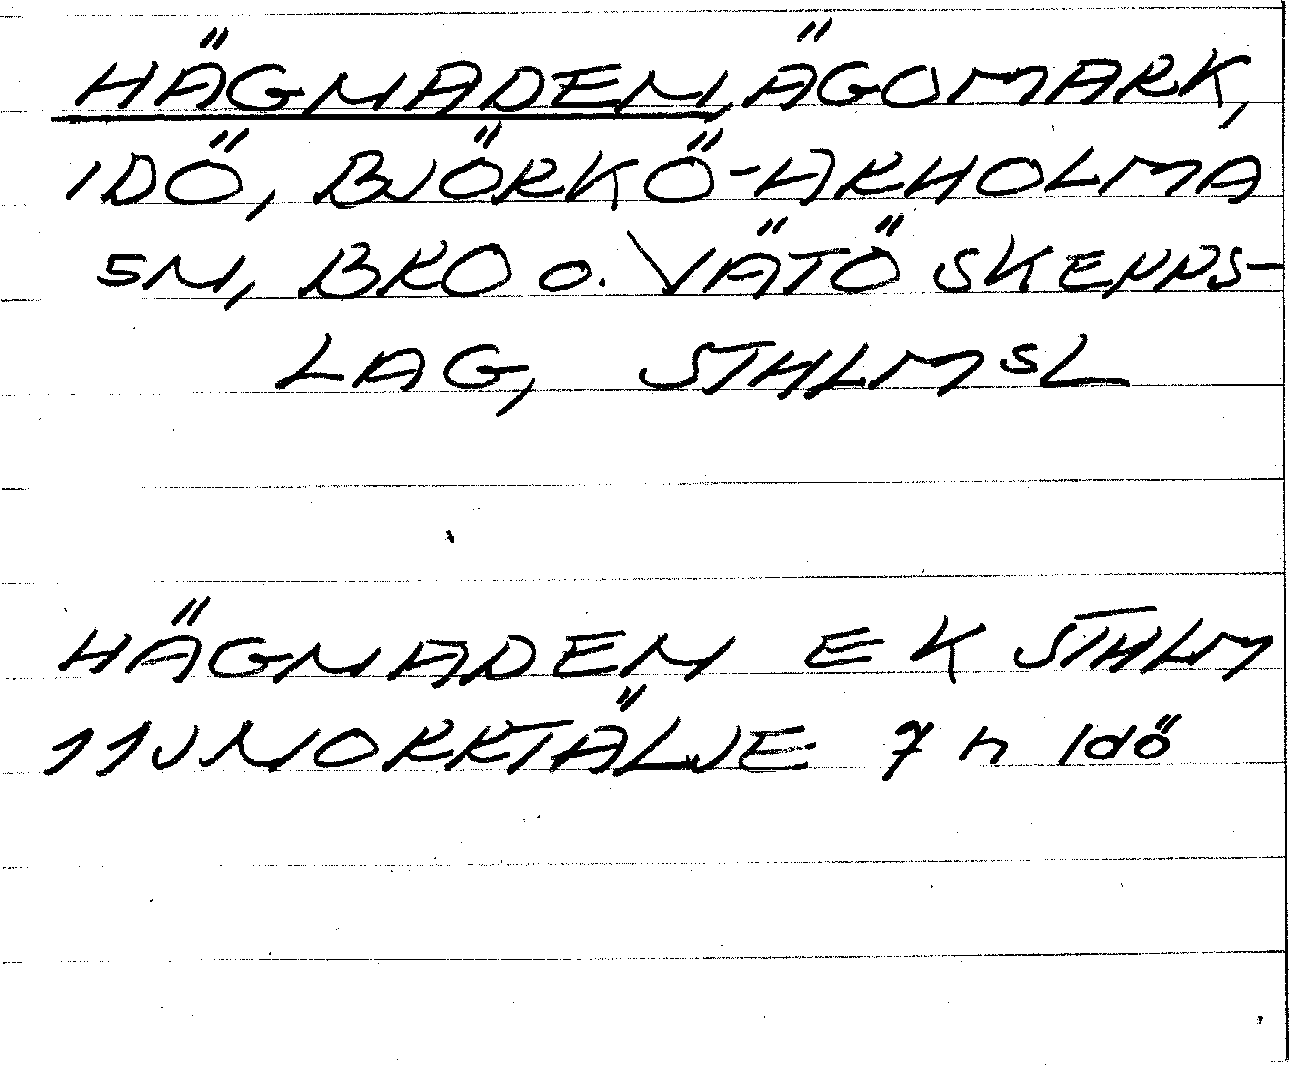 HÄGNADEN, ÄGOMARK,
IDÖ, BJÖRKÖ-ARHOLMA
SN, BRO o. VÄTÖ SKEPPS-
LAG, STHLMSL
HÄGNADEN EK STHLM
11J NORRTÄLJE 7 h Idö